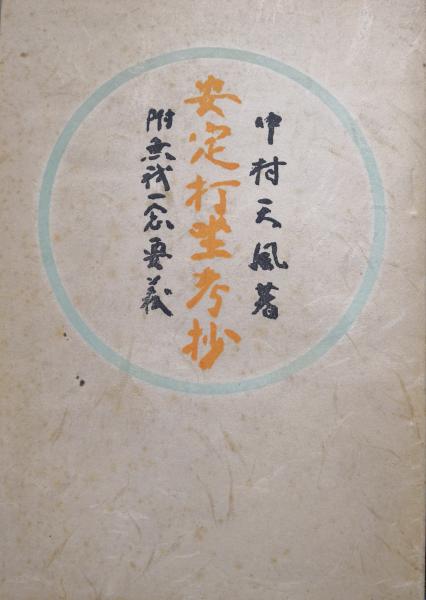 中村天風著
安定打坐考抄
附無我一念要義